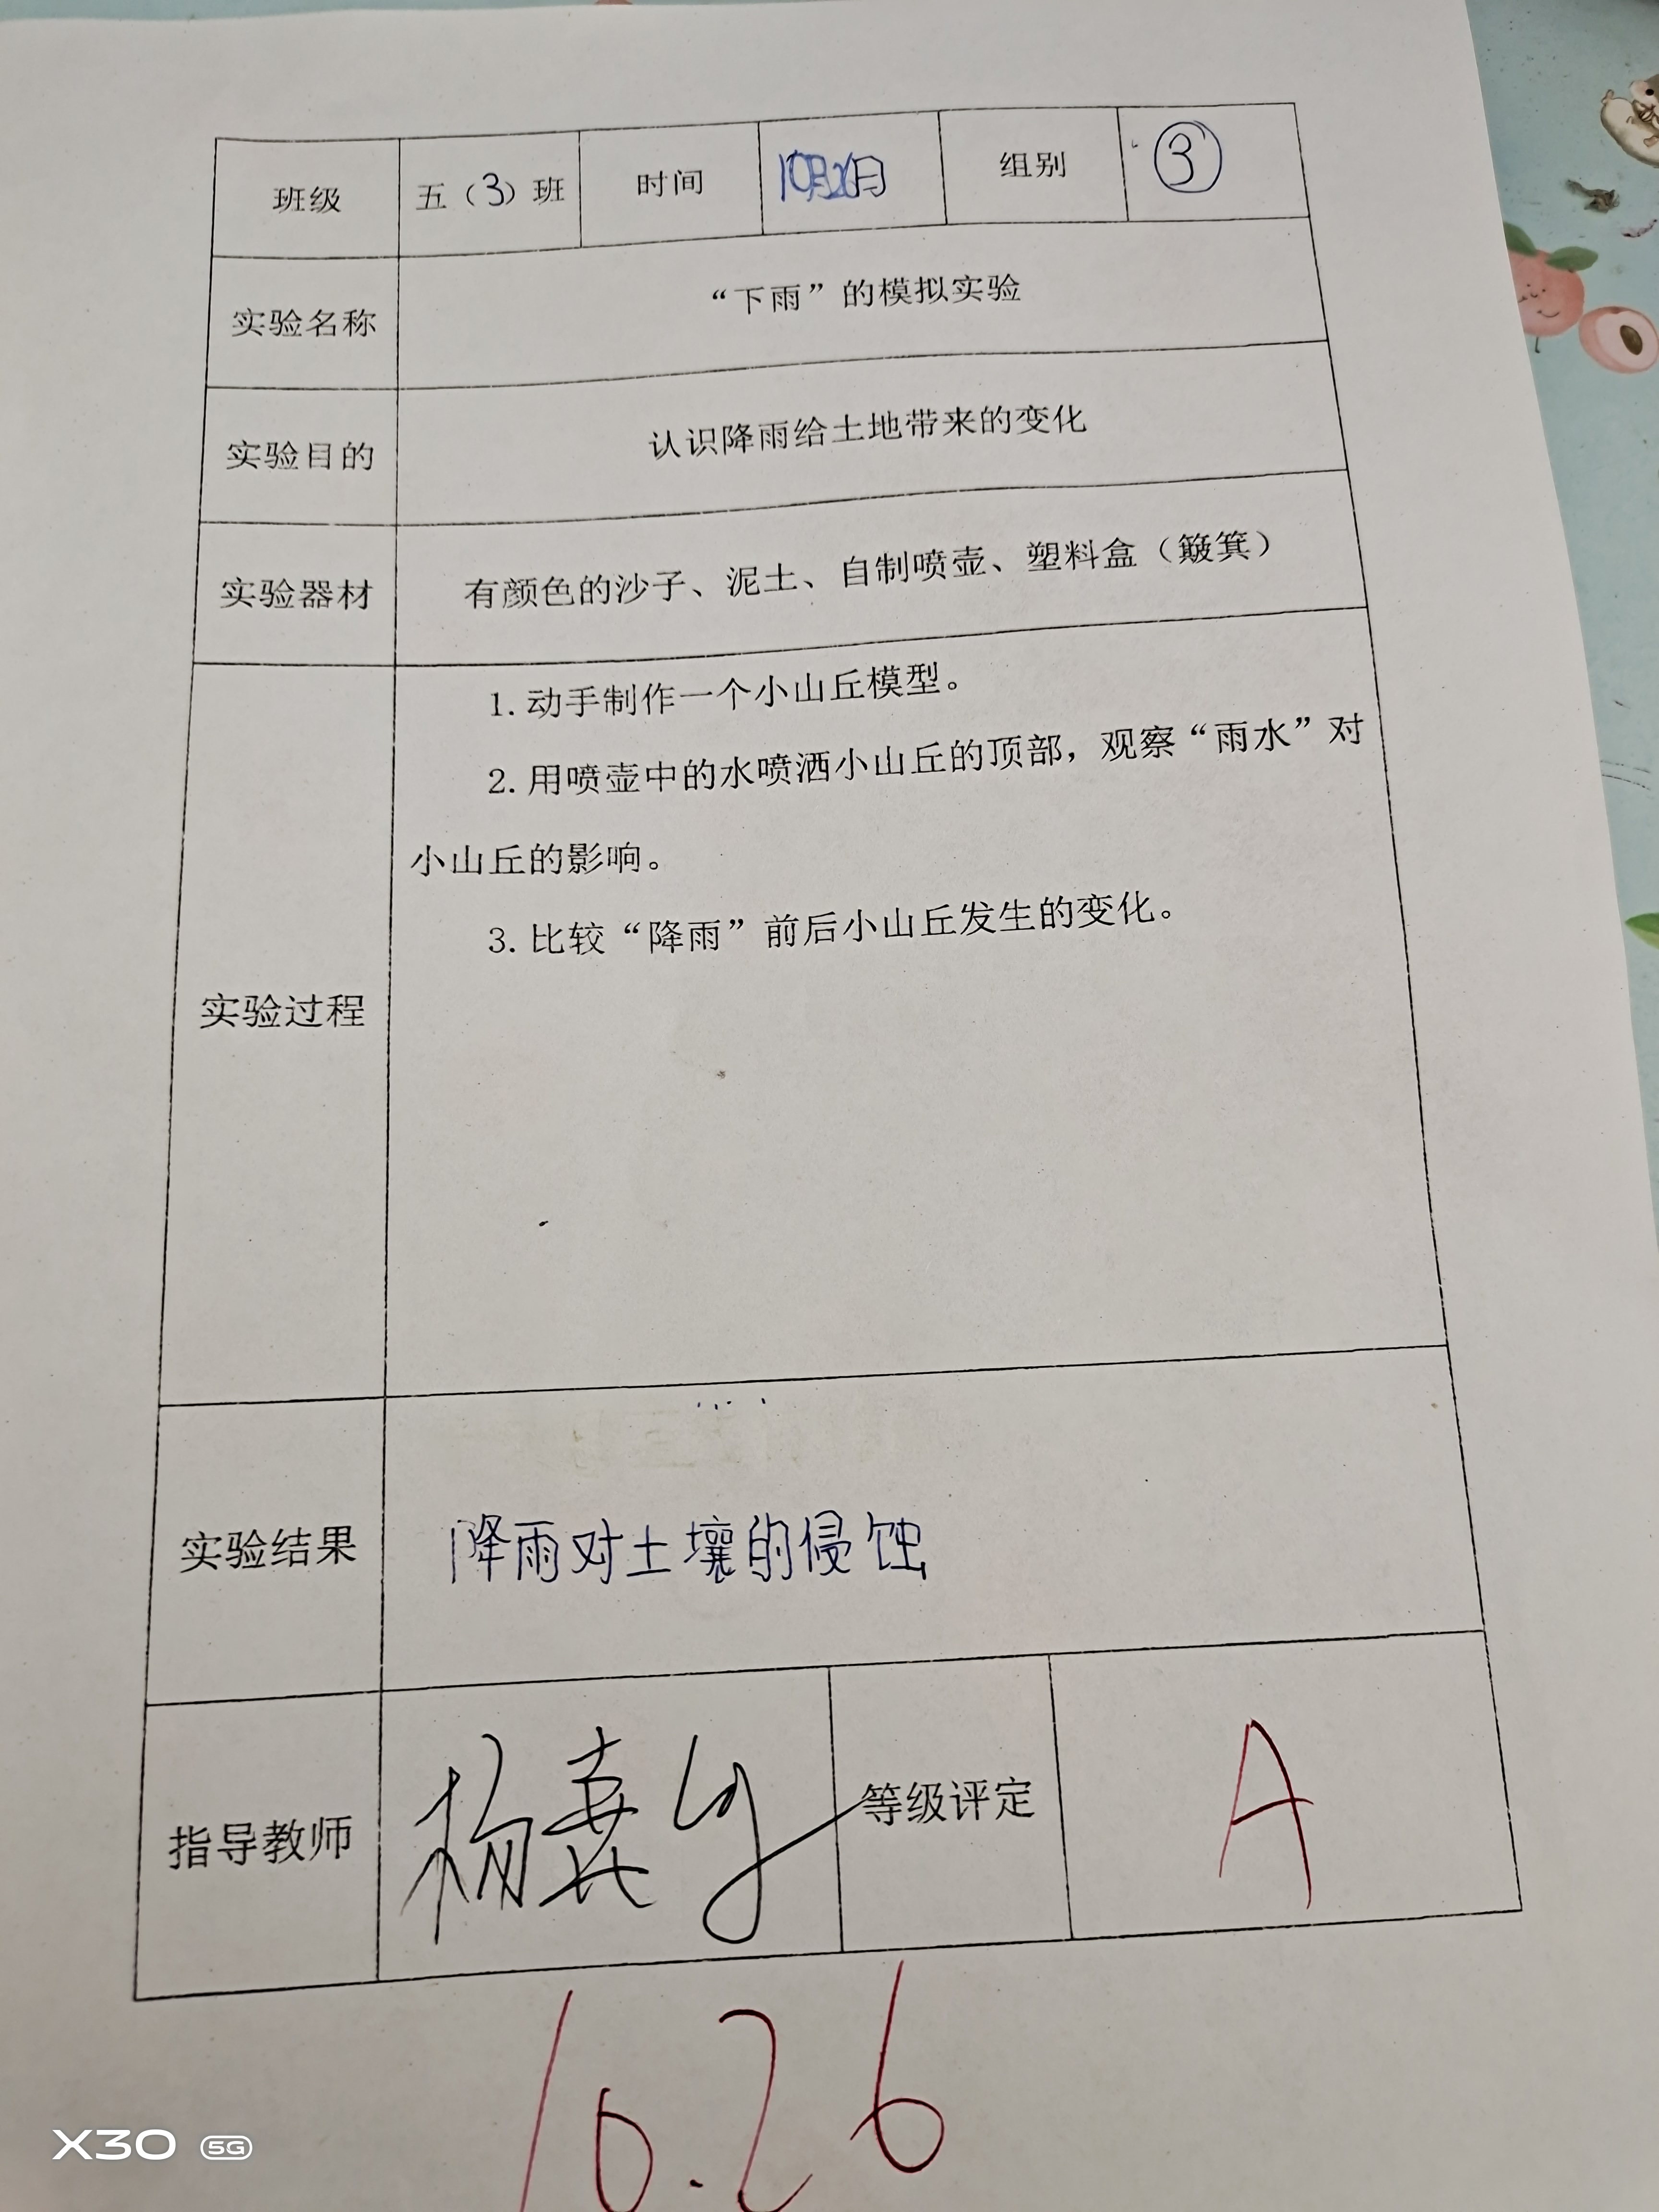 班级 五（3）班 时间 10月26日 组别 ③
实验名称 “下雨”的模拟实验
实验目的 认识降雨给土地带来的变化
实验器材 有颜色的沙子、泥土、自制喷壶、塑料盒（簸箕）
实验过程
1.动手制作一个小山丘模型。
2.用喷壶中的水喷洒小山丘的顶部，观察“雨水”对
小山丘的影响。
3.比较“降雨”前后小山丘发生的变化。
实验结果 降雨对土壤的侵蚀
指导教师 杨 等级评定 A
10.26
X30 5G